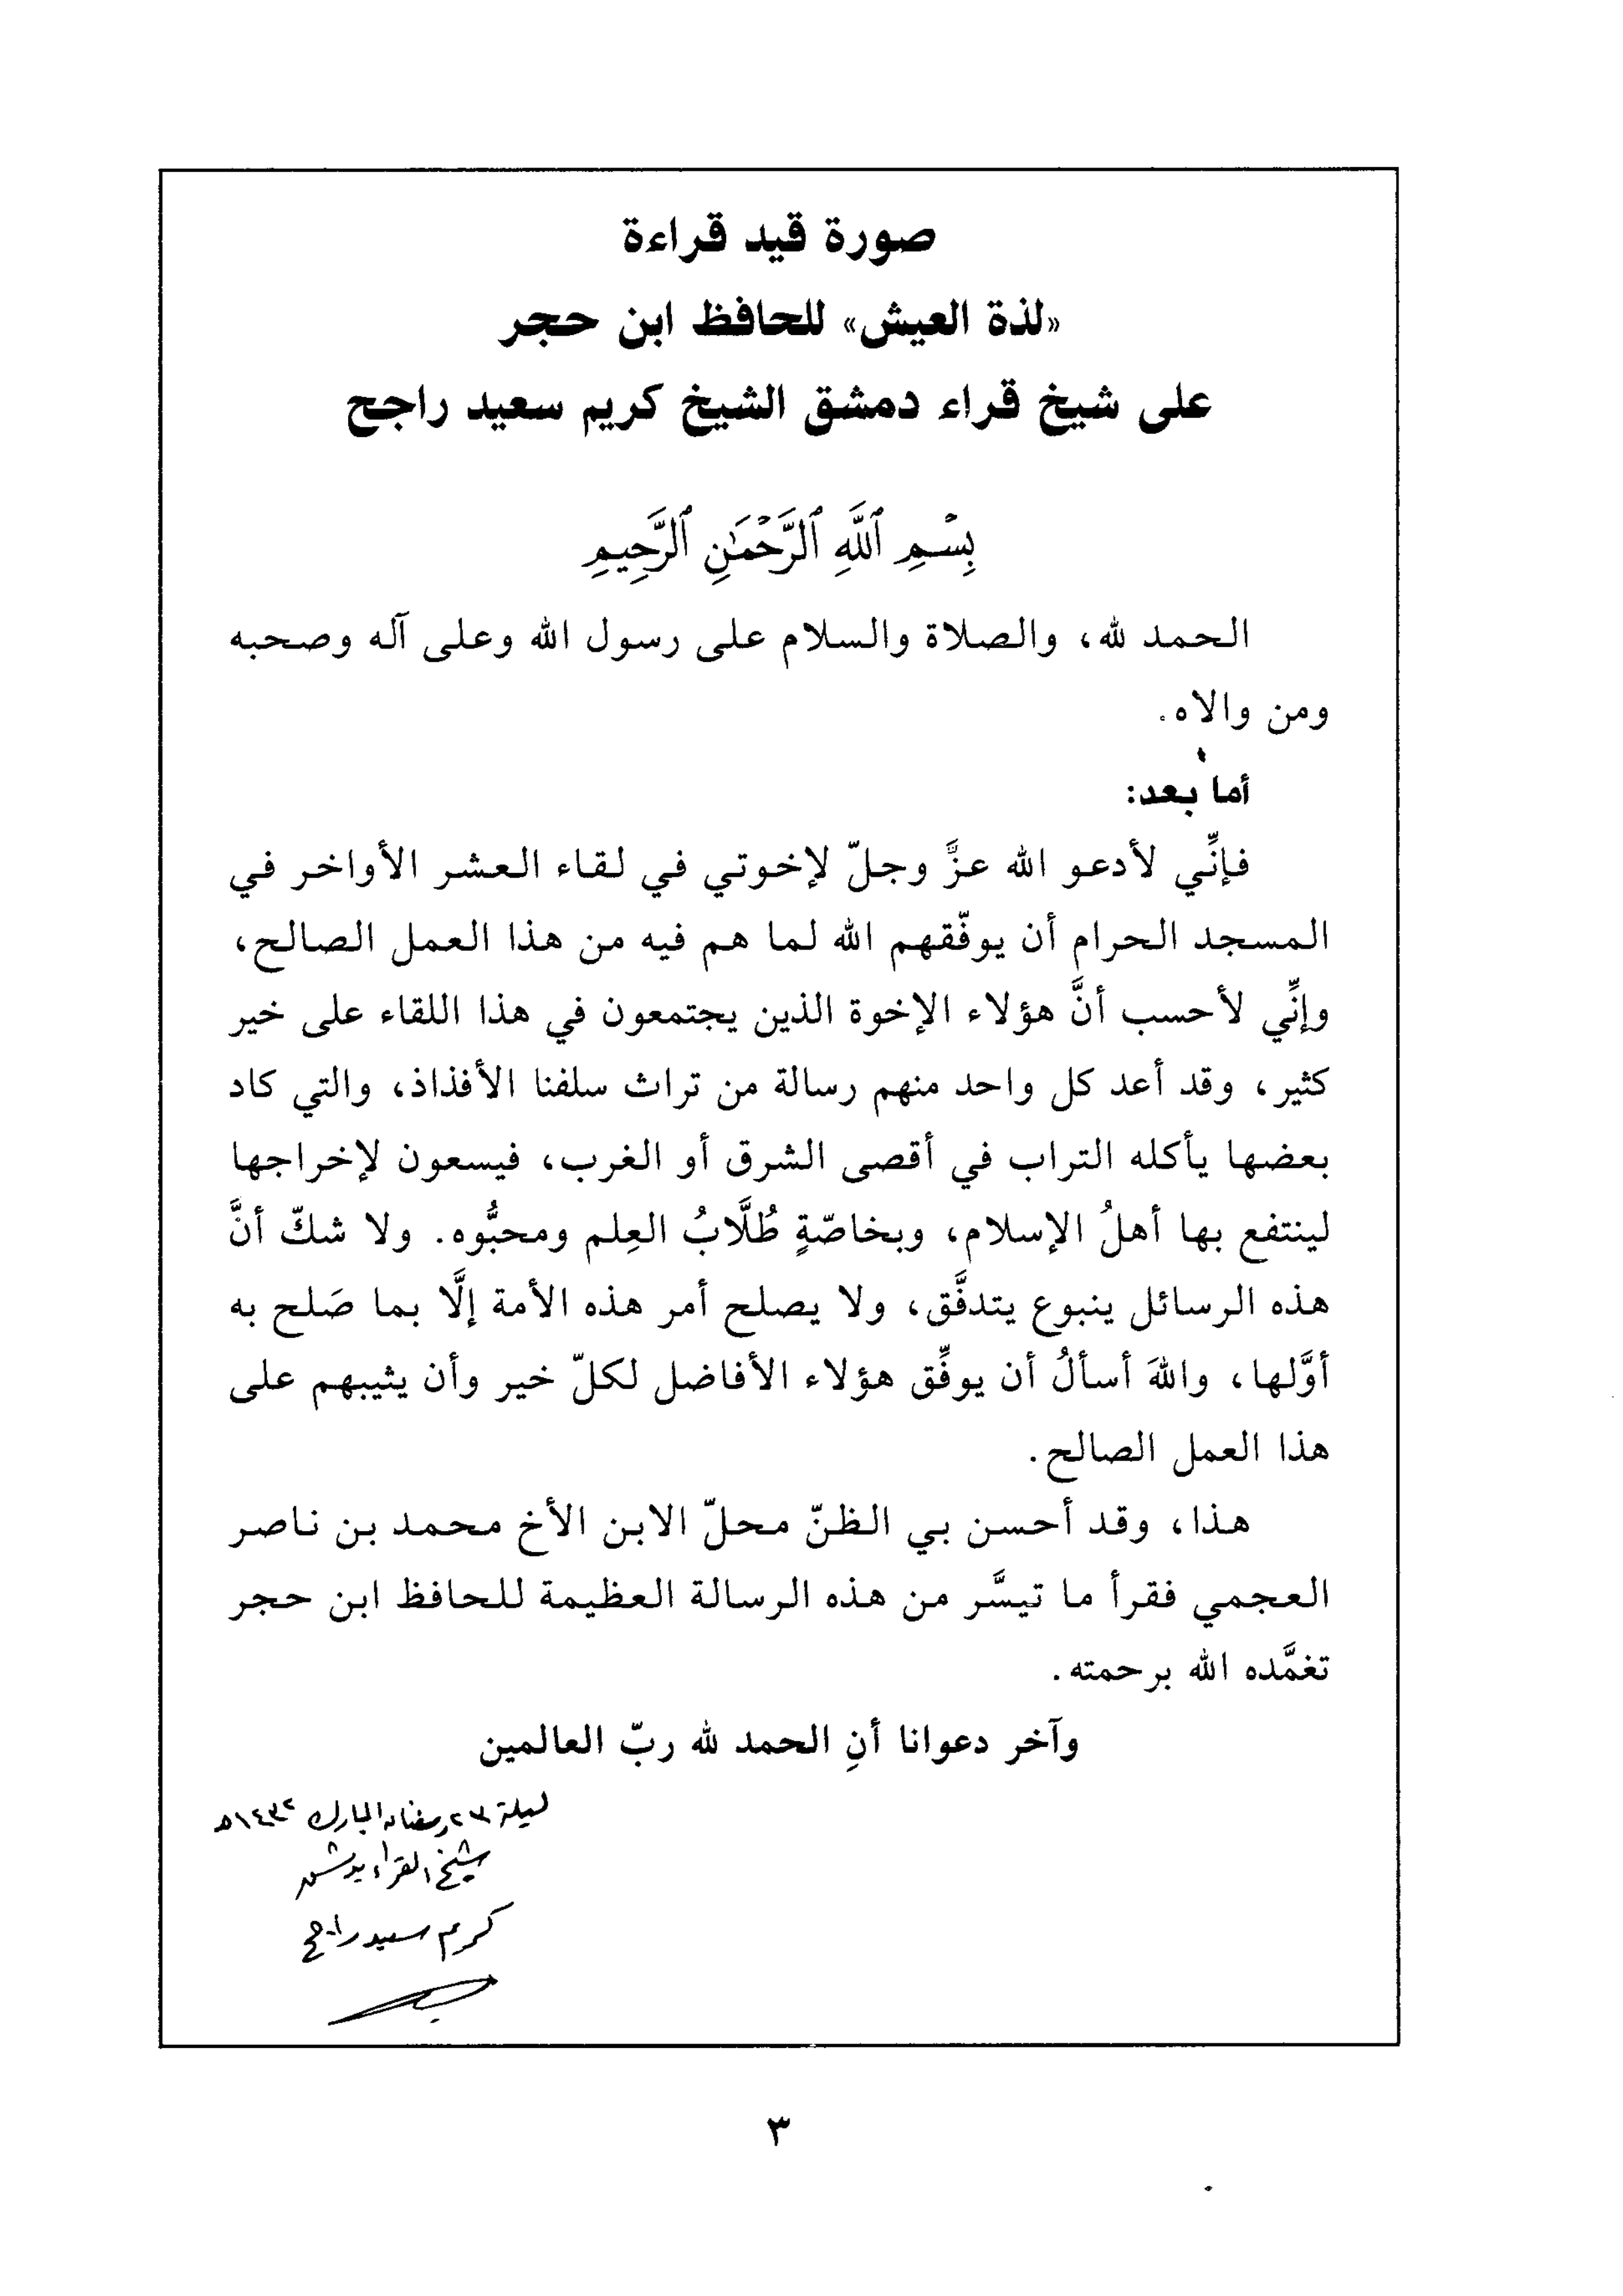 صورة قيد قراءة
«لذة العيش» للحافظ ابن حجر
على شيخ قراء دمشق الشيخ كريم سعيد راجح
بِسْمِ ٱللَّهِ ٱلرَّحْمَٰنِ ٱلرَّحِيمِ
الحمد لله، والصلاة والسلام على رسول الله وعلى آله وصحبه
ومن والاه.
أما بعد:
فإنِّي لأدعو الله عزَّ وجلّ لإخوتي في لقاء العشر الأواخر في
المسجد الحرام أن يوفّقهم الله لما هم فيه من هذا العمل الصالح،
وإنِّي لأحسب أنَّ هؤلاء الإخوة الذين يجتمعون في هذا اللقاء على خير
كثير، وقد أعد كل واحد منهم رسالة من تراث سلفنا الأفذاذ، والتي كاد
بعضها يأكله التراب في أقصى الشرق أو الغرب، فيسعون لإخراجها
لينتفع بها أهلُ الإسلام، وبخاصّةٍ طُلَّابُ العِلم ومحبُّوه. ولا شكّ أنَّ
هذه الرسائل ينبوع يتدفَّق، ولا يصلح أمر هذه الأمة إلَّا بما صَلح به
أوَّلها، واللهَ أسألُ أن يوفِّق هؤلاء الأفاضل لكلّ خير وأن يثيبهم على
هذا العمل الصالح.
هذا، وقد أحسن بي الظنّ محلّ الابن الأخ محمد بن ناصر
العجمي فقرأ ما تيسَّر من هذه الرسالة العظيمة للحافظ ابن حجر
تغمَّده الله برحمته.
وآخر دعوانا أنِ الحمد لله ربّ العالمين
ليلة ٢٣ رمضان المبارك ١٤٣٢هـ
شيخ القراء بدمشق
كريم سعيد راجح
٣